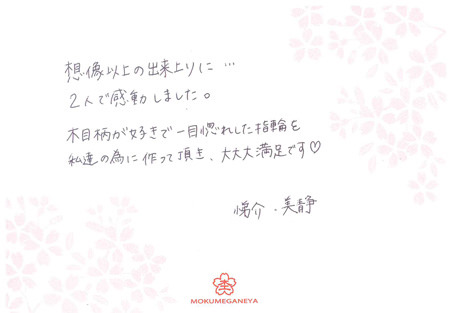 想像以上の出来上りに…
2人で感動しました。
木目柄が好きで一目惚れした指輪を
私達の為に作って頂き、大大大満足です♡
悌介・美静
MOKUMEGANEYA